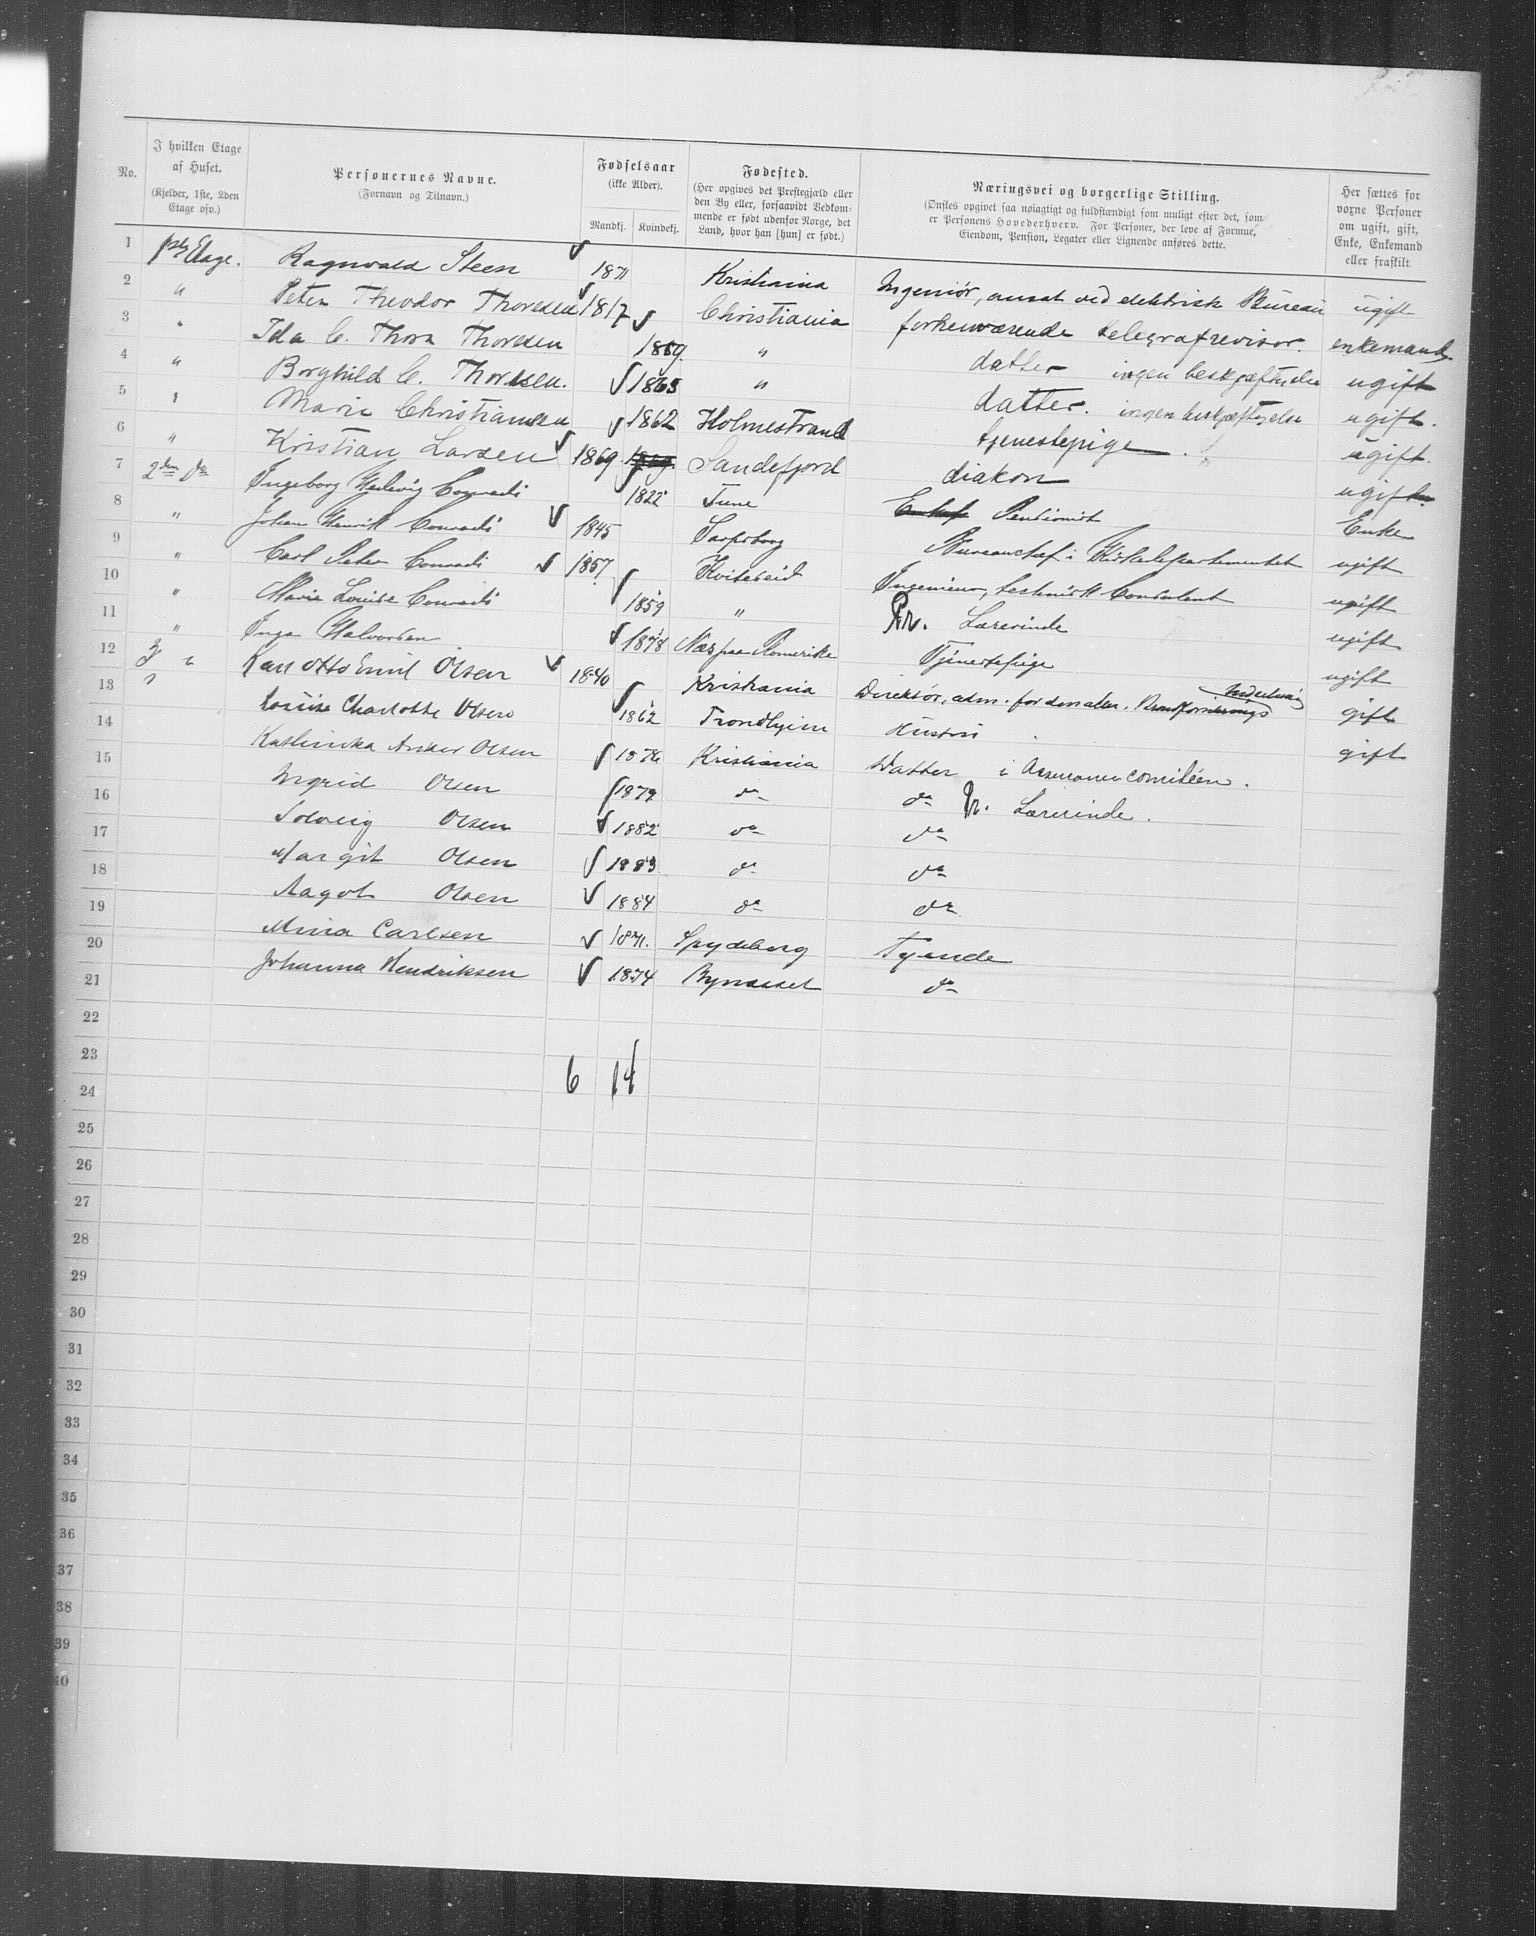 No.
I hvilken Etage af Huset.
(Kjelder, 1ste, 2den Etage osv.)
Personernes Navne.
(Fornavn og Tilnavn.)
Fødselsaar
(ikke Alder).
Mandkj. Kvindekj.
Fødested.
(Her opgives det Prestegjæld eller den By eller, forsaavidt Vedkommende er født udenfor Norge, det Land, hvor han [hun] er født.)
Næringsvei og borgerlige Stilling.
(Ønskes opgivet saa nøiagtigt og fuldstændigt som muligt efter det, som er Personens Hovederhverv. For Personer, der leve af Formue, Eiendom, Pension, Legater eller Lignende anføres dette.
Her sættes for voxne Personer om ugift, gift, Enke, Enkemand eller fraskilt.
1 Etage. Ragnvald Steen 1871 Kristiania Ingeniør, ansat ved elektrisk Bureau ugift
2 " Peter Theodor Thoresen 1817 Christiania forhenværende telegrafrevisor. enkemand.
3 " Ida C. Thora Thoresen 1859 " datter ingen beskjæftigelse ugift
4 " Borghild C. Thoresen. 1865 " datter. ingen beskjæftigelse ugift.
5 " Marie Christiansen 1862 Holmestrand tjenestepige. ugift.
6 " Kristian Larsen 1869 Sandefjord diakon ugift.
7 2den do Ingeborg Hedevig Conradi 1822 Tune Pensionist Enke
8 " Johan Henrik Conradi 1845 Sarpsborg Bureauchef i Kirkedepartementet ugift
9 " Carl Peter Conradi 1857 Kviteseid Ingeniør, teknisk Consulent ugift
10 " Marie Louise Conradi 1859 " Pr. Lærerinde ugift
11 " Inga Halvorsen 1878 Næs paa Romerike Tjenestepige ugift
12 3 " Karl Otto Emil Olsen 1840 Kristiania Direktør, adm. for den alm. gift
13 " Louise Charlotte Olsen 1862 Trondhjem Hustru gift
14 Kathinka Anker Olsen 1876 Kristiania Datter i Assurancecomitéen.
15 Ingrid Olsen 1879 do do Pr. Lærerinde.
16 Solveig Olsen 1882 do do
17 Margit Olsen 1883 do do
18 Aagot Olsen 1884 do do
19 Mina Carlsen 1871. Spydeberg Tyende
20 Johanna Hendriksen 1874 Bynesset do
21
22
23
6 14
24
25
26
27
28
29
30
31
32
33
34
35
36
37
38
39
40